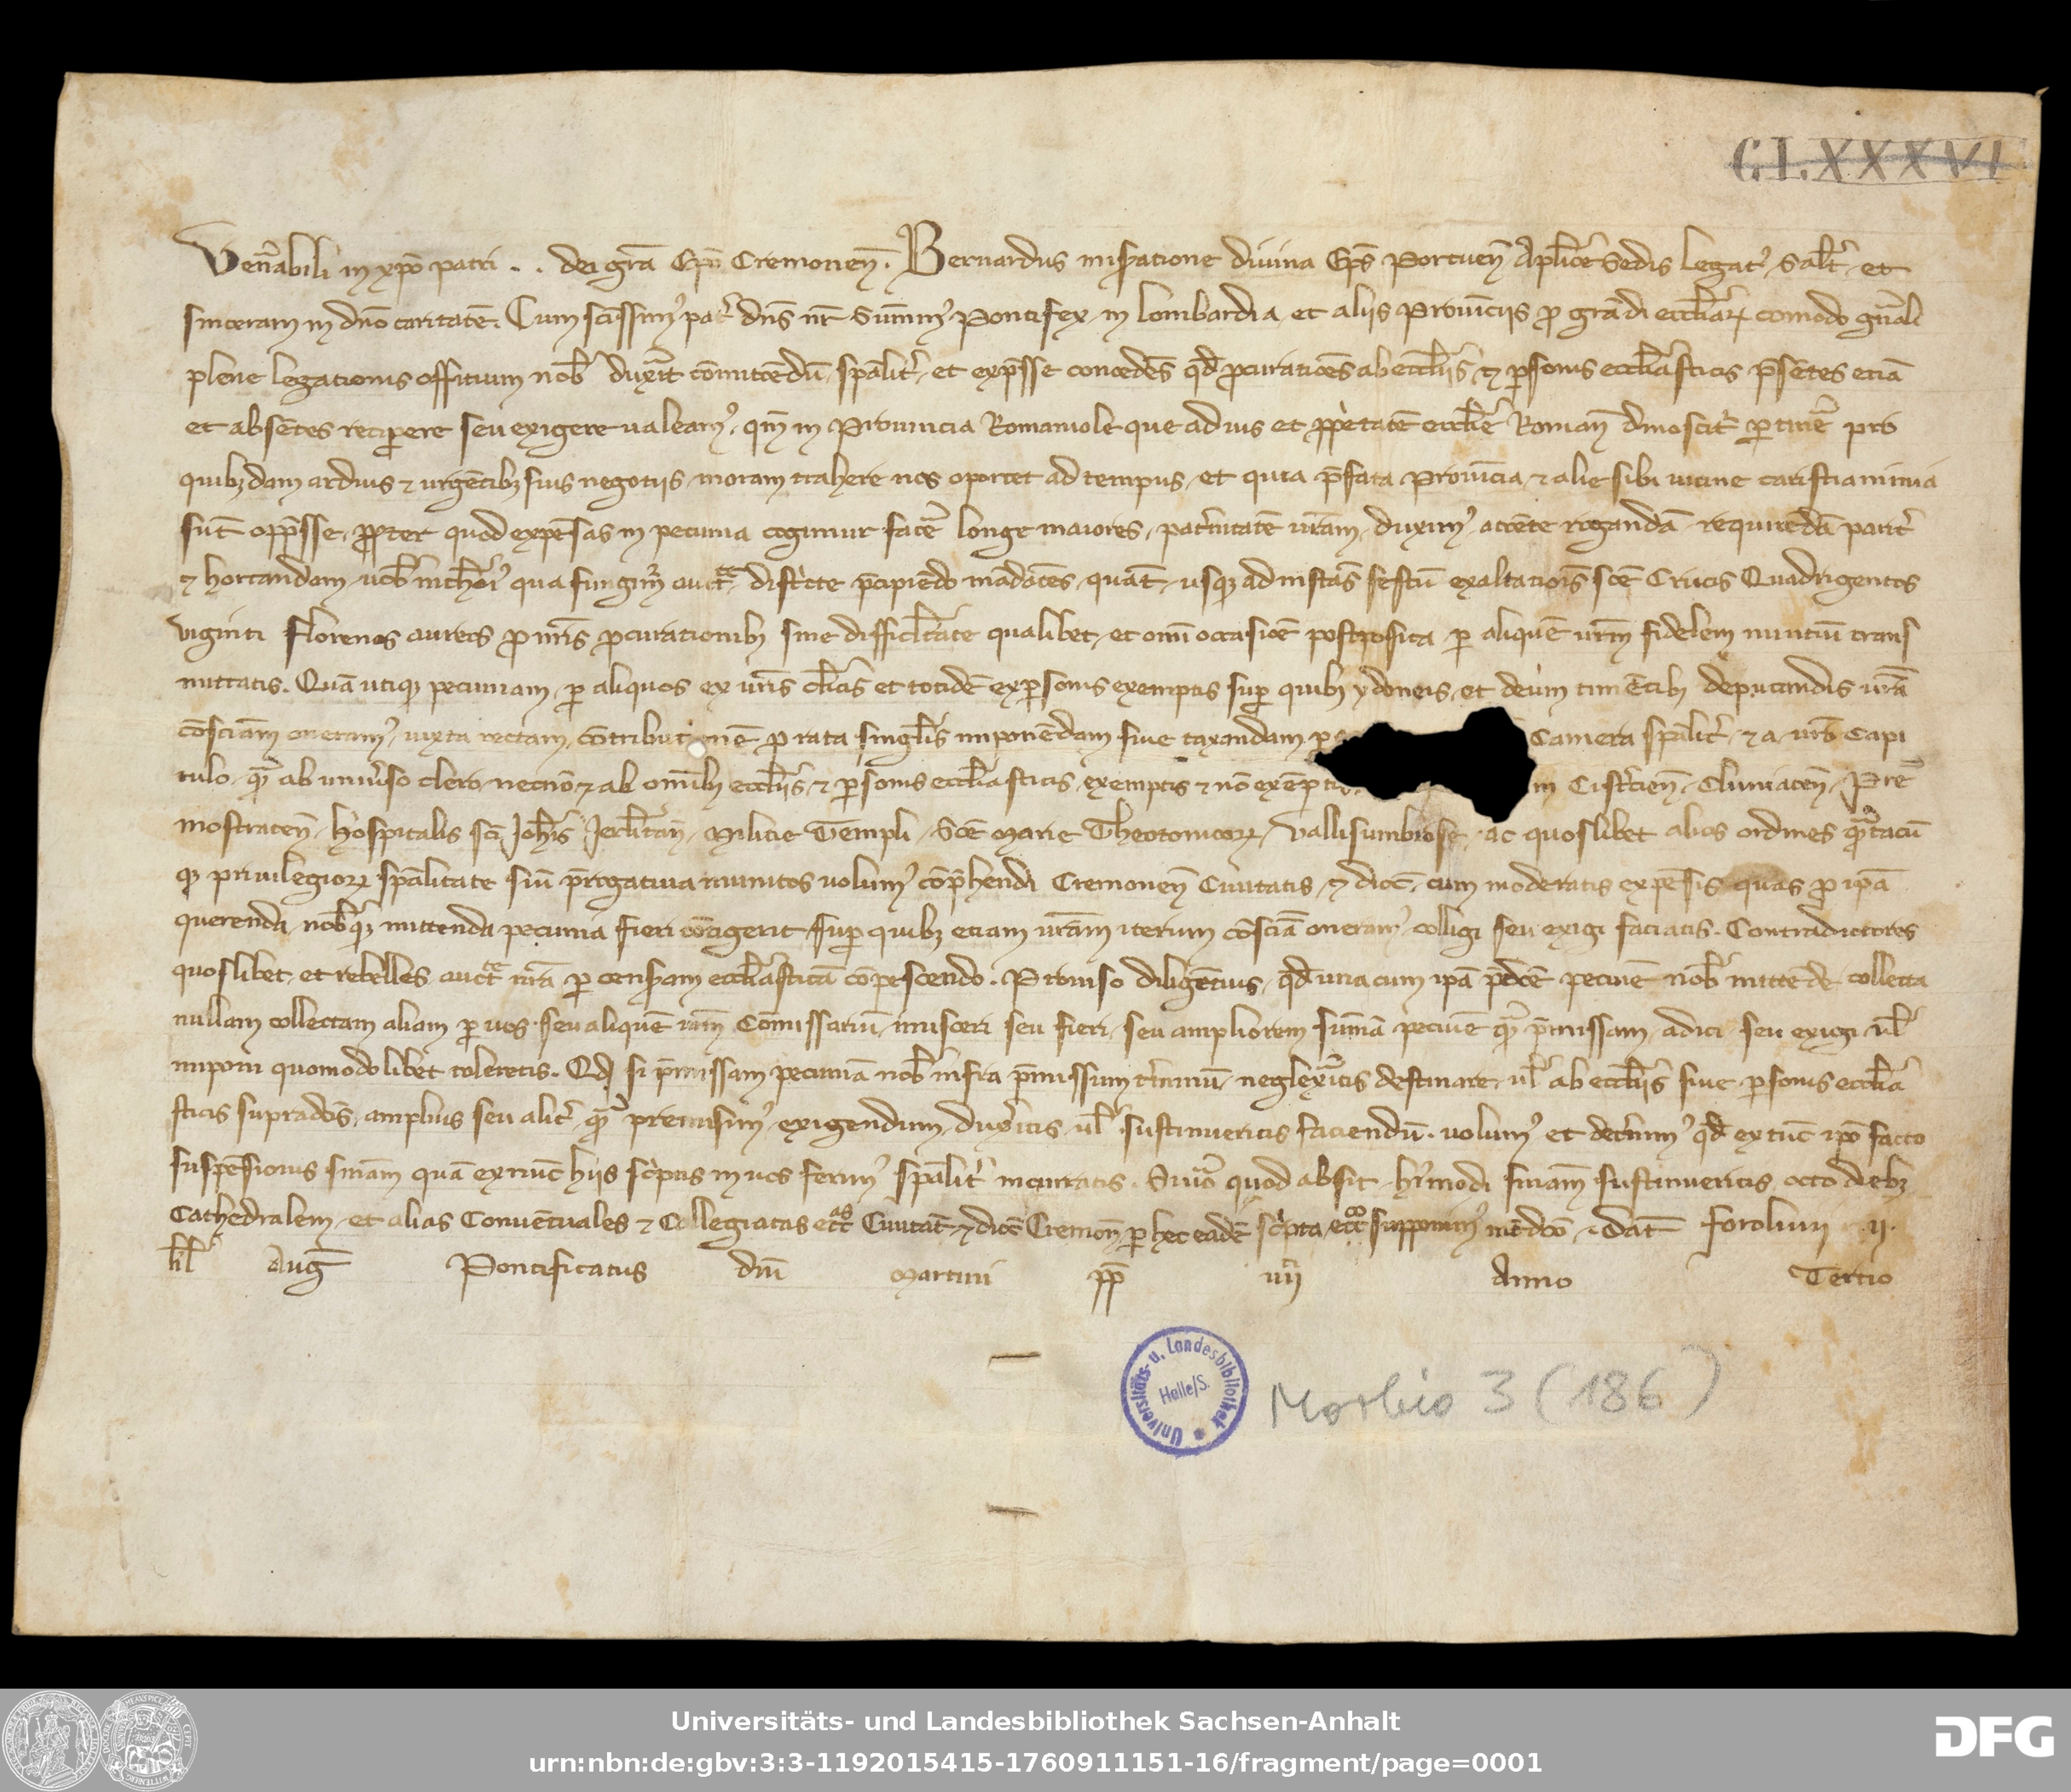 CLXXXVI
Ven̄abili in xpō patri . . dei grā Ep̄o Cremoneñ. Bernardus miseatione diuina Ep̄s Portueñ Aplice Sedis Legat᾽ Salt̄ et
sinceram in dnō caritatē. Cum sc̄issim᾽ pat̄ dn̄s nr̄ Sum̄m᾽ Pontifex in Lombardia et aliis Prouīciis ꝓ grādi eccl̄iaꝝ comodo gn̄ali
plene legationis offitium nob̄ duxīt cōmittēdū, spāliter et expsse concedēs qd̄ ꝓcuratiōes ab eccl̄iis ⁊ ꝑsonis eccl̄iasticis p̄sētes etiā
et absētes recipere seu exigere ualeam᾽, qm̄ in Prouincia Romaniole que ad ius et ꝓp̄etatē eccl̄ie Romañ dinoscit̄ ꝑtinē pro
quibꝫdam arduis ⁊ urgētibꝫ suis negotiis moram trahere nos oportet ad tempus, et quia p̄fata Prouīcia ⁊ alie sibi uicine caristia nimia
sūt opp̄sse, ꝓpter quod expēsas in pecunia cogimur facē longe maiores, pat̄nitatē ur̄am duxim᾽ attēte rogandā requirēdā parit̄
⁊ hortandam uob̄ nichōi᾽ qua fungim̄ auctte distīcte p̄cipiēdo mādātes, quat̄ usqꝫ ad instās festū exaltatiōis sc̄e Crucis Quadrigentos
viginti Florenos aureos ꝓ nr̄is ꝓcurationibꝫ sine difficltāte qualibet, et omī occasiōe postposita ꝑ aliquē ur̄m fidelem nuntiū trans
mittatis. Quā utiqꝫ pecuniam ꝑ aliquos ex ur̄is cl̄icis et totidē ex ꝑsonis exemptis suꝑ quibꝫ ydoneis, et deum timētibꝫ deputandis ur̄ā
cōsciām oneram᾽, iuxta rectam cōtributionē ꝓ rata singlis imponēdam siue taxandam Camera spālit̄ ⁊ a ur̄o Capi
tulo qā ab uniūso clero necnō ⁊ ab om̄ibꝫ eccl̄iis ⁊ ꝑsonis eccl̄iasticis exemptis ⁊ nō exēptis m Cistercieñ, Cluniaceñ, Pre
mostrateñ, Hospitalis sc̄i Joh̄is Jerl̄itañ, Militie Templi, Sc̄e Marie Theotonicoꝝ, Vallisumbrose, ac quoslibet alios ordines qātacū
qꝫ priuilegioꝝ spālitate siū p̄rogatiua munitos uolum᾽ cōp̄hendi Cremoneñ Ciuitatis, ⁊ dioc̄. cum moderatis expēsis quas ꝓ ip̄ā
querenda nob̄qꝫ mittenda pecunia fieri cōtigerit suꝑ quibꝫ etiam ur̄ām iterum cōsciā oneram᾽ colligi seu exigi faciatis. Contradictores
quoslibet, et rebelles, auctte nr̄ā ꝑ censurām eccl̄iasticā cōpescendo. Prouiso diligētius, qd̄ una cum ip̄ā p̄dc̄e pecunie nob̄ mittēde collecta
nullam collectam aliam ꝑ uos seu aliquē ur̄m Cōmissariū, misceri seu fieri, seu ampliorem summā pecunie qā p̄missam, adici seu exigi ul̄
imponi quomodolibet toleretis. Qd̄ si p̄missam pecuniā nob̄ infra p̄missum t̄minū neglexitis destinare, ul̄ ab eccl̄iis siue ꝑsonis eccl̄ia
sticis supradc̄is, amplius seu alit̄ qā premisim᾽ exigendum duxitis ul̄ sustinueritis faciendū. uolum᾽ et decnim᾽ qd̄ ex tūc ip̄o facto
suspēsionis sn̄iam quā ex nūc hiis sc̄iptis in uos ferim᾽ spālit̄ incurratis. Siuō quod absit h᾽modi sn̄iam sustinueritis octo diebꝫ
Cathedralem, et alias Conuētuales ⁊ Collegiatas eccas Ciuitat̄ ⁊ dioc̄ Cremoñ ꝑ hec eadē sc̄ipta ecco supponim᾽ intdc̄o. Dat̄ Foroliuii .ii.
kl̄ Aug̃ Pontificatus dn̄i Martini pp̄ iiijti Anno Tertio
Universitäts- u. Landesbibliothek
Halle/S.
Morbio 3 (186)
Universitäts- und Landesbibliothek Sachsen-Anhalt
urn:nbn:de:gbv:3:3-1192015415-1760911151-16/fragment/page=0001
DFG